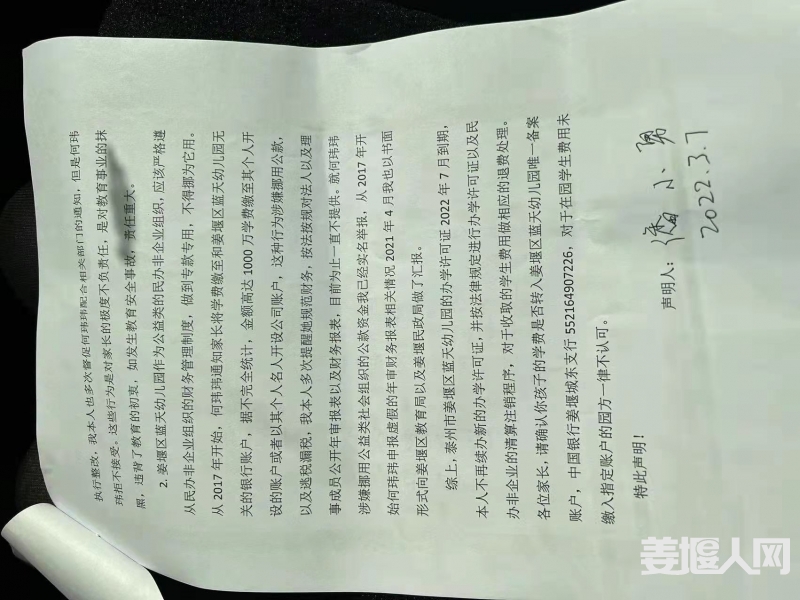 执行整改，我本人也多次督促何玮玮配合相关部门的通知，但是何玮
玮拒不接受。这些行为是对家长的极度不负责任，是对教育事业的抹
黑，违背了教育的初衷，如发生教育安全事故，责任重大。
2. 姜堰区蓝天幼儿园作为公益类的民办非企业组织，应该严格遵
从民办非企业组织的财务管理制度，做到专款专用，不得挪为它用。
从 2017 年开始，何玮玮通知家长将学费缴至和姜堰区蓝天幼儿园无
关的银行账户，据不完全统计，金额高达 1000 万学费缴至其个人开
设的账户或者以其个人名人开设公司账户，这种行为涉嫌挪用公款，
以及逃税漏税，我本人多次提醒她规范财务，按法按规对法人以及理
事成员公开年审报表以及财务报表，目前为止一直不提供。就何玮玮
涉嫌挪用公益类社会组织的公款资金我已经实名举报，从 2017 年开
始何玮玮申报虚假的年审财务报表相关情况 2021 年 4 月我也以书面
形式向姜堰区教育局以及姜堰民政局做了汇报。
综上，泰州市姜堰区蓝天幼儿园的办学许可证 2022 年 7 月到期，
本人不再续办新的办学许可证，并按法律规定进行办学许可证以及民
办非企业的清算注销程序，对于收取的学生费用做相应的退费处理。
各位家长，请确认你孩子的学费是否转入姜堰区蓝天幼儿园唯一备案
账户，中国银行姜堰城东支行 552164907226，对于在园学生费用未
缴入指定账户的园方一律不认可。
特此声明！
声明人：潘小勇
2022.3.7
姜堰人网